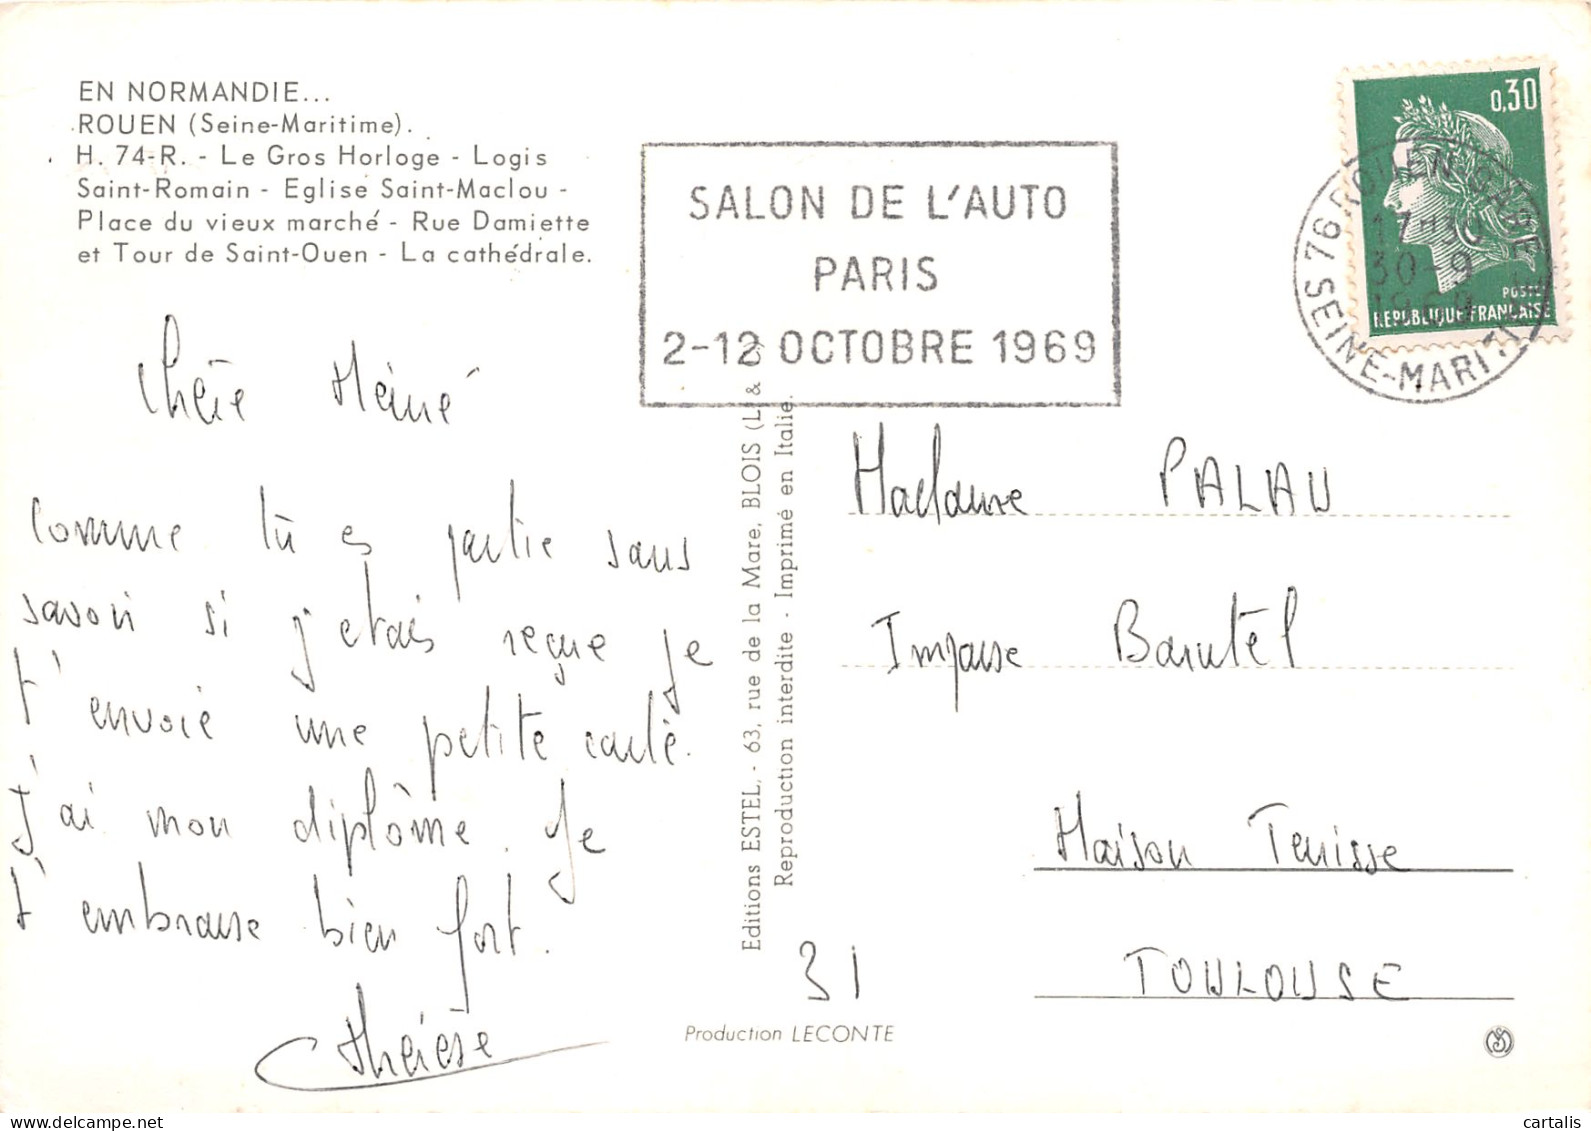 EN NORMANDIE...
ROUEN (Seine-Maritime).
H. 74-R. - Le Gros Horloge - Logis
Saint-Romain - Eglise Saint-Maclou -
Place du vieux marché - Rue Damiette
et Tour de Saint-Ouen - La cathédrale.
SALON DE L'AUTO
PARIS
2-12 OCTOBRE 1969
0,30
POSTES
REPUBLIQUE FRANÇAISE
76 ROUEN GARE
17-30
30-9
1969
SEINE-MARITIME
Chère Mémé
Comme tu es partie sans
savoir si j'etais reçue je
t'envoie une petite carte.
J'ai mon diplôme. Je
t'embrasse bien fort.
Thérèse
Editions ESTEL, - 63, rue de la Mare, BLOIS (L. &
Reproduction interdite - Imprimé en Italie.
Madame PALAU
Impasse Barutel
Maison Tenisse
31 TOULOUSE
Production LECONTE
cartalis